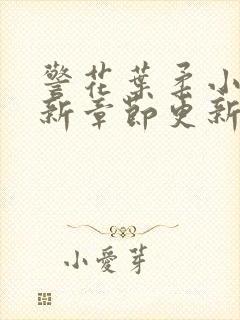 警花葉柔小
新章節更新
小愛芽